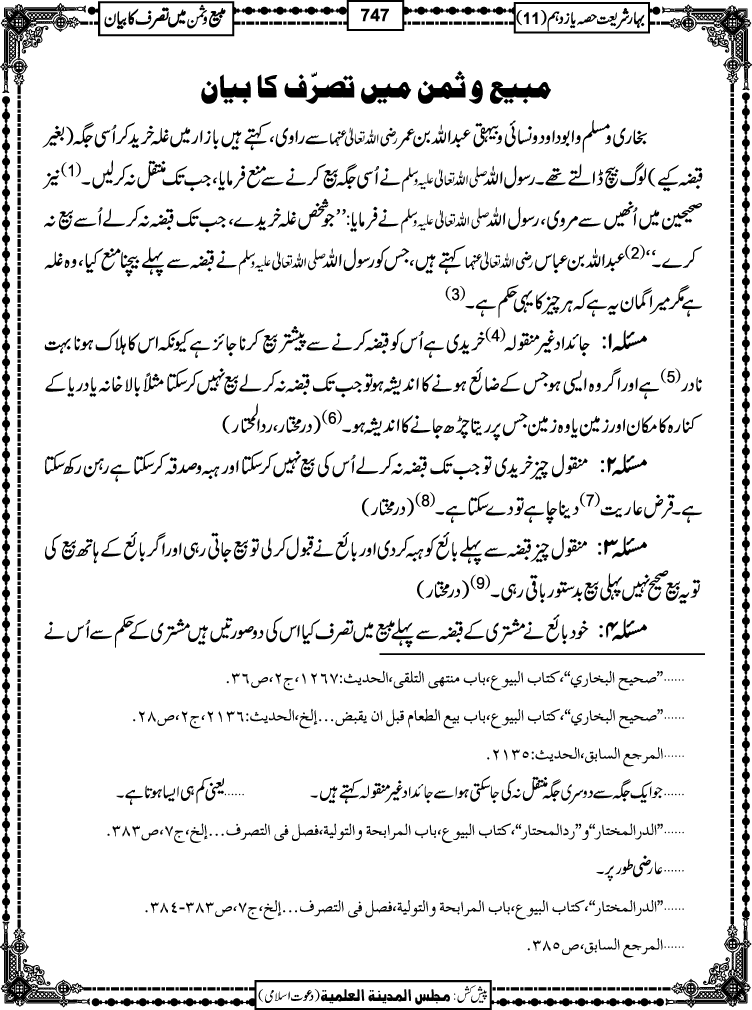 بہار شریعت حصہ یازدہم (11)
747
مبیع و ثمن میں تصرف کا بیان
مبیع و ثمن میں تصرّف کا بیان
بخاری و مسلم و ابو داود و نسائی و بیہقی عبداللہ بن عمر رضی اللہ تعالیٰ عنہما سے راوی، کہتے ہیں بازار میں غلہ خرید کر اُسی جگہ (بغیر
قبضہ کیے) لوگ بیچ ڈالتے تھے۔ رسول اللہ صلی اللہ تعالیٰ علیہ وسلم نے اُسی جگہ بیع کرنے سے منع فرمایا، جب تک منتقل نہ کرلیں۔(1) نیز
صحیحین میں اُنھیں سے مروی، رسول اللہ صلی اللہ تعالیٰ علیہ وسلم نے فرمایا: ’’جو شخص غلہ خریدے، جب تک قبضہ نہ کرلے اُسے بیع نہ
کرے۔‘‘(2) عبداللہ بن عباس رضی اللہ تعالیٰ عنہما کہتے ہیں، جس کو رسول اللہ صلی اللہ تعالیٰ علیہ وسلم نے قبضہ سے پہلے بیچنا منع کیا، وہ غلہ
ہے مگر میرا گمان یہ ہے کہ ہر چیز کا یہی حکم ہے۔(3)
مسئلہ ۱: جائداد غیر منقولہ(4) خریدی ہے اُس کو قبضہ کرنے سے پیشتر بیع کرنا جائز ہے کیونکہ اس کا ہلاک ہونا بہت
نادر(5) ہے اور اگر وہ ایسی ہو جس کے ضائع ہونے کا اندیشہ ہو تو جب تک قبضہ نہ کرلے بیع نہیں کرسکتا مثلاً بالا خانہ یا دریا کے
کنارہ کا مکان اور زمین یا وہ زمین جس پر ریتا چڑھ جانے کا اندیشہ ہو۔(6) (درمختار، ردالمحتار)
مسئلہ ۲: منقول چیز خریدی تو جب تک قبضہ نہ کرلے اُس کی بیع نہیں کرسکتا اور ہبہ و صدقہ کرسکتا ہے رہن رکھ سکتا
ہے۔ قرض عاریت(7) دینا چاہے تو دے سکتا ہے۔(8) (درمختار)
مسئلہ ۳: منقول چیز قبضہ سے پہلے بائع کو ہبہ کردی اور بائع نے قبول کرلی تو بیع جاتی رہی اور اگر بائع کے ہاتھ بیع کی
تو یہ بیع صحیح نہیں پہلی بیع بدستور باقی رہی۔(9) (درمختار)
مسئلہ ۴: خود بائع نے مشتری کے قبضہ سے پہلے مبیع میں تصرف کیا اس کی دو صورتیں ہیں مشتری کے حکم سے اُس نے
......’’صحيح البخاري‘‘، كتاب البيوع، باب منتهى التلقى، الحديث: ١٢٦٧، ج٢، ص٣٦.
......’’صحيح البخاري‘‘، كتاب البيوع، باب بيع الطعام قبل ان يقبض...إلخ، الحديث: ٢١٣٦، ج٢، ص٢٨.
......المرجع السابق، الحديث: ٢١٣٥.
......جو ایک جگہ سے دوسری جگہ منتقل نہ کی جاسکتی ہو اسے جائداد غیر منقولہ کہتے ہیں۔ ......یعنی کم ہی ایسا ہوتا ہے۔
......’’الدرالمختار‘‘ و ’’ردالمحتار‘‘، كتاب البيوع، باب المرابحة والتولية، فصل فى التصرف...إلخ، ج٧، ص٣٨٣.
......عارضی طور پر۔
......’’الدرالمختار‘‘، كتاب البيوع، باب المرابحة والتولية، فصل فى التصرف...إلخ، ج٧، ص٣٨٣-٣٨٤.
......المرجع السابق، ص٣٨٥.
پیش کش: مجلس المدينة العلمية (دعوت اسلامی)